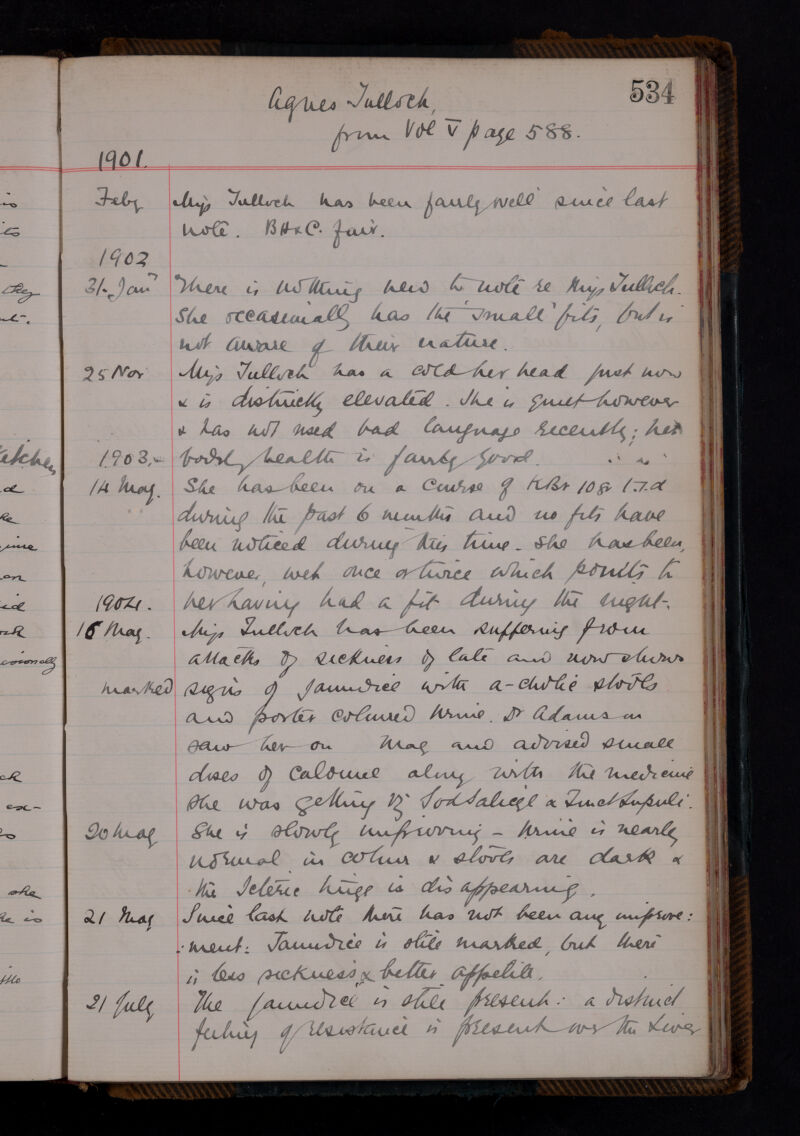 534
Agnes Tulloch,
from Vol V page 588.
1901.
Feby Miss Tulloch has been fairly well since last
note. BH&C. fair.
1902
31. Jany There is nothing new to note re Miss Tulloch.
She occasionally has the 'small' fits, but is
not aware of their nature.
25 Nov Miss Tulloch has a cold her head just now
& is distinctly elevated. She is quiet however
& has not used bad language recently; her
1903. bodily health is fairly good.
14 May. She has been on a course of KBr 10gr t.i.d
during the past 6 months and no fits have
been noticed during this time. She has been,
however, wet once or twice which points to
1904. her having had a fit during the night.
16 May. Miss Tulloch has been suffering from
attacks of sickness of late and now shows
marked signs of jaundice with a-cholic stools
and porter coloured urine. Dr Adamson
saw her on May and advised small
doses of calomel along with the medicine
she was getting viz Sod Salicyl & Tinct Lupuli.
20 May She is slowly improving - urine is nearly
normal in colour & stools are dark &
the Icteric tinge is disappearing.
21 May Since last note there has not been any improve:
:ment: Jaundice is still marked, but there
is less sickness & better appetite.
21 July The jaundice is still present: a distinct
feeling of resistance is present over the Liver
is
its
they
kitchen
she
he is